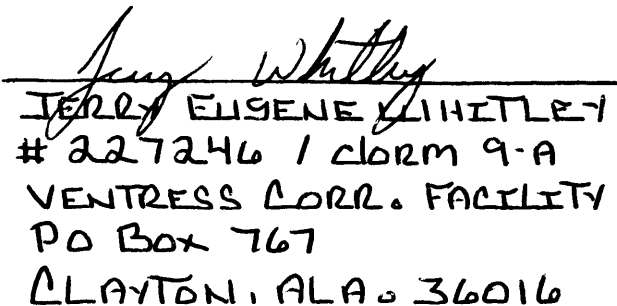 Jerry Whitley
JERRY EUGENE WHITLEY
# 227246 / dorm 9-A
VENTRESS CORR. FACILITY
PO BOX 767
CLAYTON, ALA. 36016